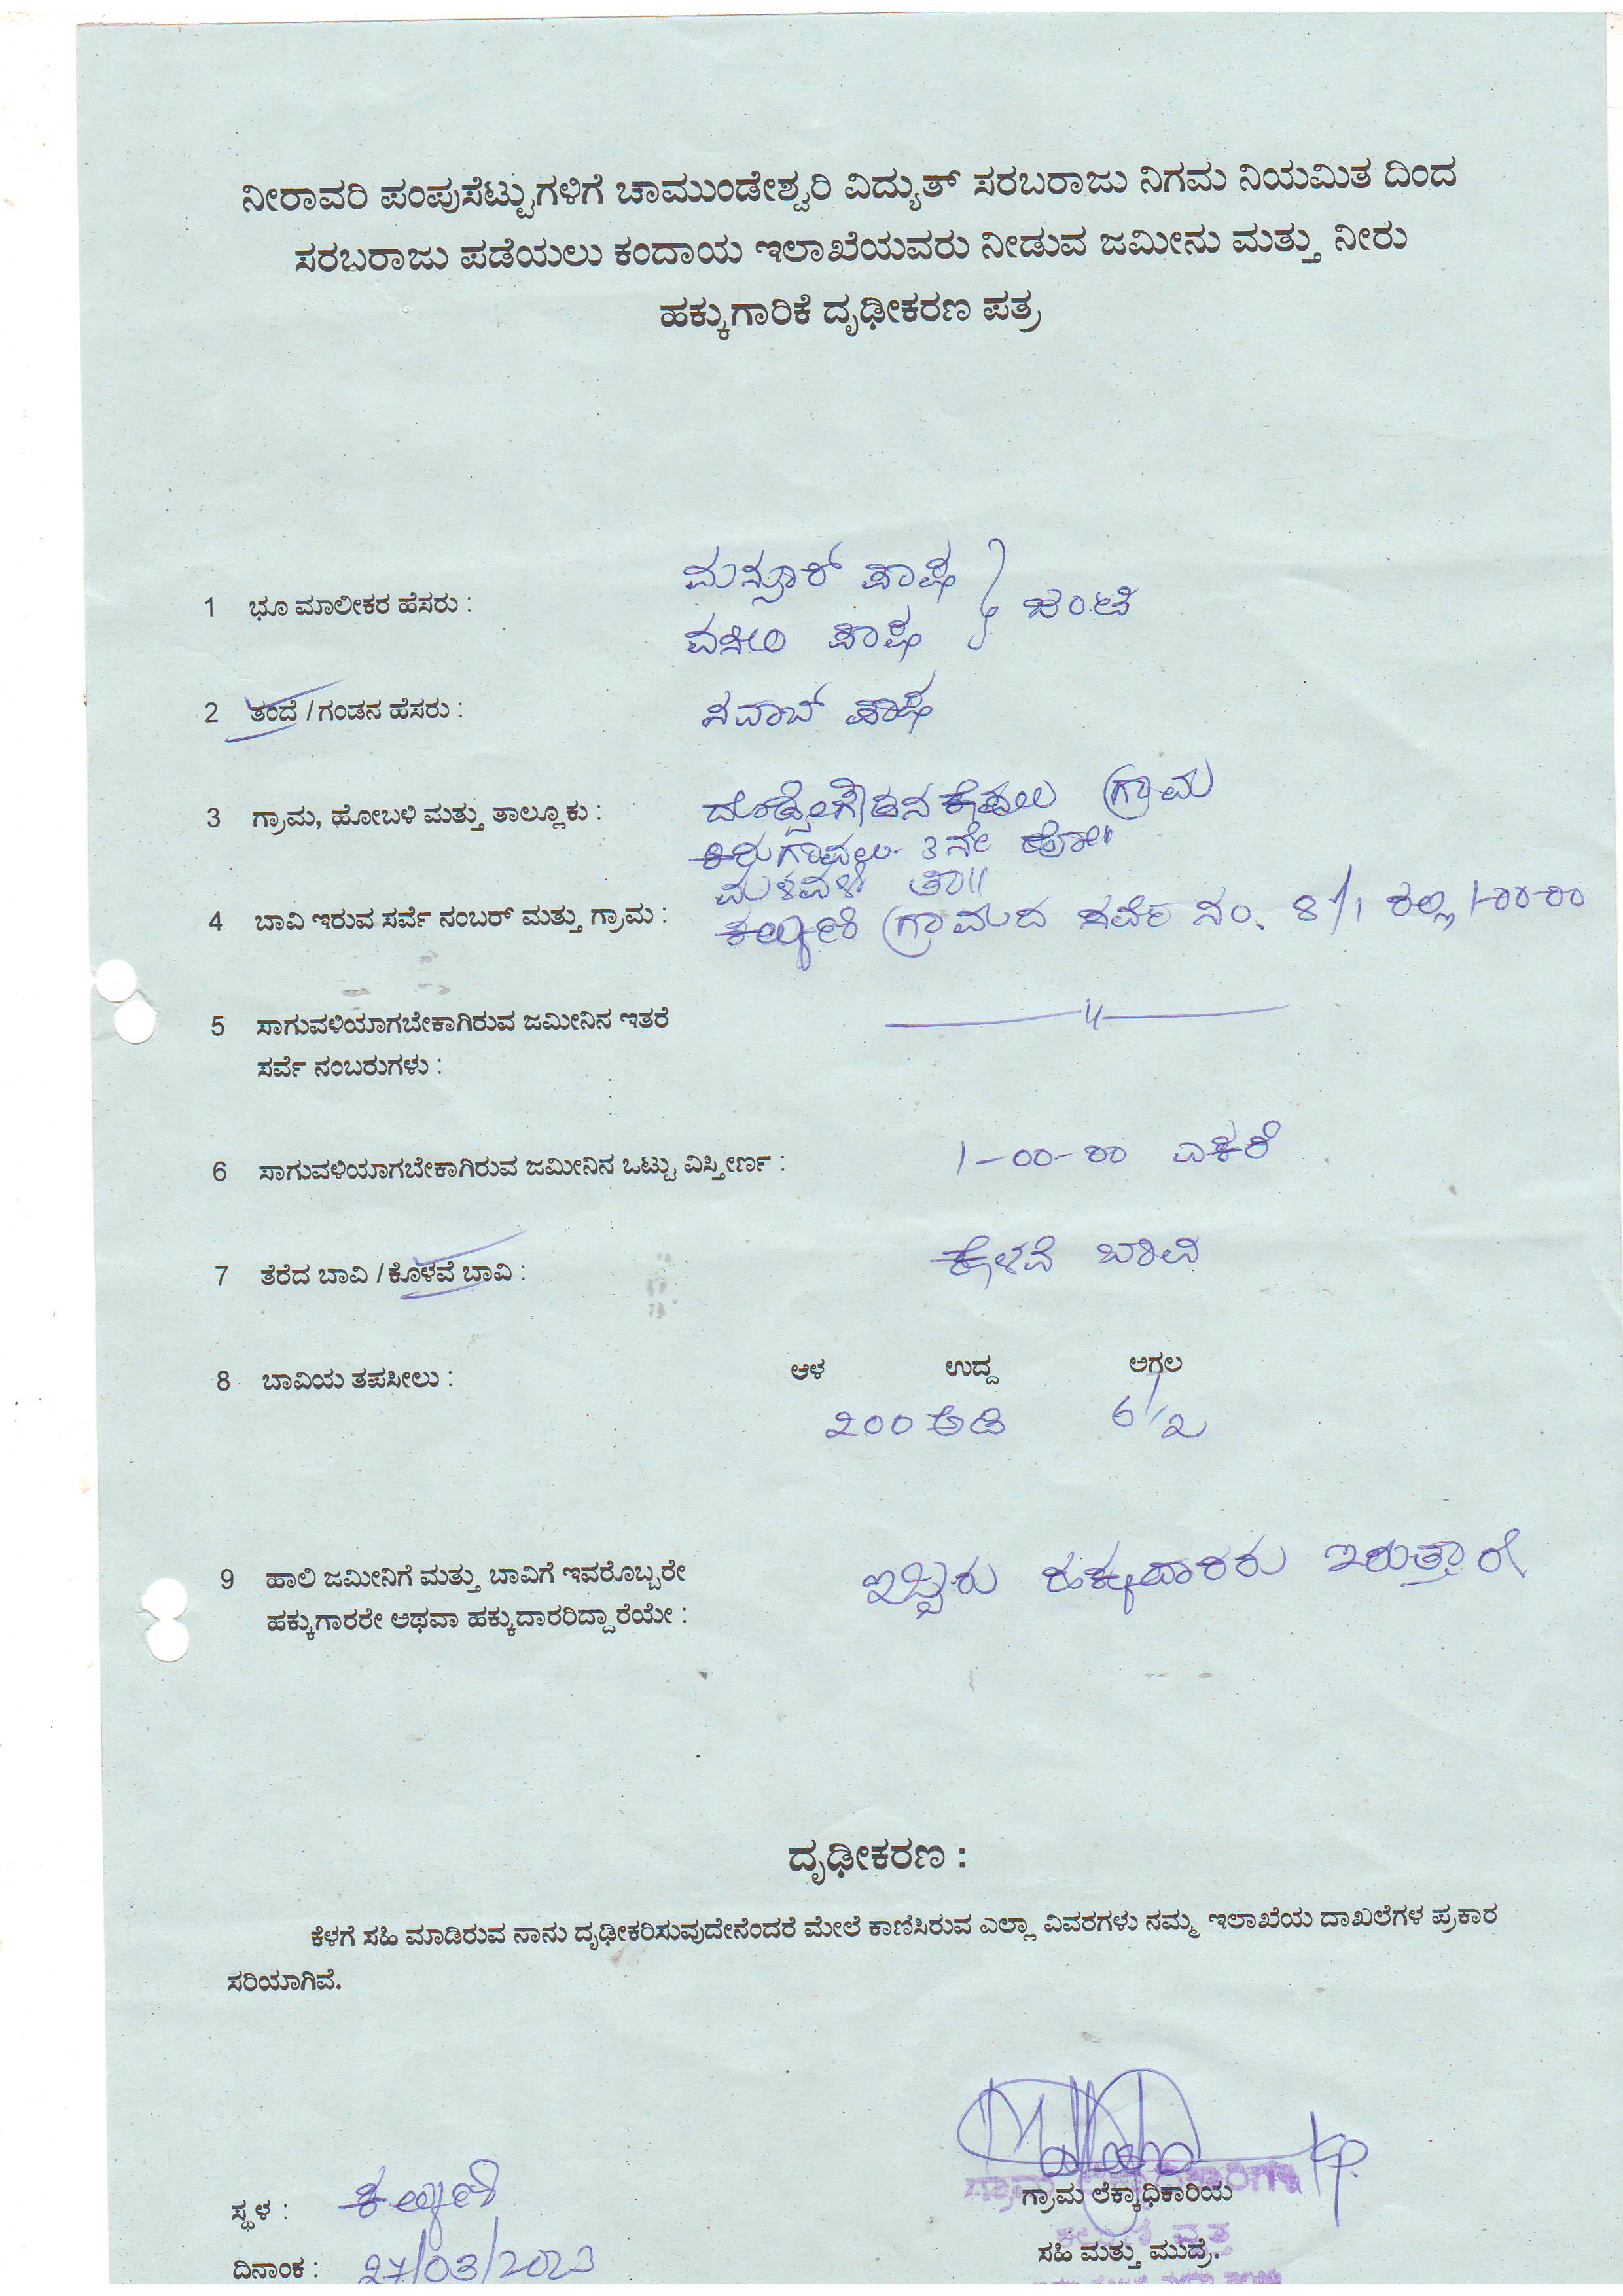 ನೀರಾವರಿ ಪಂಪುಸೆಟ್ಟುಗಳಿಗೆ ಚಾಮುಂಡೇಶ್ವರಿ ವಿದ್ಯುತ್ ಸರಬರಾಜು ನಿಗಮ ನಿಯಮಿತ ದಿಂದ
ಸರಬರಾಜು ಪಡೆಯಲು ಕಂದಾಯ ಇಲಾಖೆಯವರು ನೀಡುವ ಜಮೀನು ಮತ್ತು ನೀರು
ಹಕ್ಕುಗಾರಿಕೆ ದೃಢೀಕರಣ ಪತ್ರ
1 ಭೂ ಮಾಲೀಕರ ಹೆಸರು : ಮನ್ಸೂರ್ ಪಾಷ
ವಸೀಂ ಪಾಷ ಜಂಟಿ
2 ತಂದೆ / ಗಂಡನ ಹೆಸರು : ನವಾಬ್ ಪಾಷ
3 ಗ್ರಾಮ, ಹೋಬಳಿ ಮತ್ತು ತಾಲ್ಲೂಕು : ಗ್ರಾಮ
ಕಿರುಗಾವಲು 3ನೇ ಹೋ॥
ಮಳವಳ್ಳಿ ತಾ॥
4 ಬಾವಿ ಇರುವ ಸರ್ವೆ ನಂಬರ್ ಮತ್ತು ಗ್ರಾಮ : ಕಲ್ಕುಣಿ ಗ್ರಾಮದ ಸರ್ವೆ ನಂ. 8/1 ರಲ್ಲಿ 1-00-00
5 ಸಾಗುವಳಿಯಾಗಬೇಕಾಗಿರುವ ಜಮೀನಿನ ಇತರೆ — 〃 —
ಸರ್ವೆ ನಂಬರುಗಳು :
6 ಸಾಗುವಳಿಯಾಗಬೇಕಾಗಿರುವ ಜಮೀನಿನ ಒಟ್ಟು ವಿಸ್ತೀರ್ಣ : 1-00-00 ಎಕರೆ
7 ತೆರೆದ ಬಾವಿ / ಕೊಳವೆ ಬಾವಿ : ಕೊಳವೆ ಬಾವಿ
8 ಬಾವಿಯ ತಪಸೀಲು : ಆಳ ಉದ್ದ ಅಗಲ
೨೦೦ ಅಡಿ 6 1/2
9 ಹಾಲಿ ಜಮೀನಿಗೆ ಮತ್ತು ಬಾವಿಗೆ ಇವರೊಬ್ಬರೇ ಇಬ್ಬರು ಹಕ್ಕುದಾರರು ಇರುತ್ತಾರೆ
ಹಕ್ಕುಗಾರರೇ ಅಥವಾ ಹಕ್ಕುದಾರರಿದ್ದಾರೆಯೇ :
ದೃಢೀಕರಣ :
ಕೆಳಗೆ ಸಹಿ ಮಾಡಿರುವ ನಾನು ದೃಢೀಕರಿಸುವುದೇನೆಂದರೆ ಮೇಲೆ ಕಾಣಿಸಿರುವ ಎಲ್ಲಾ ವಿವರಗಳು ನಮ್ಮ ಇಲಾಖೆಯ ದಾಖಲೆಗಳ ಪ್ರಕಾರ
ಸರಿಯಾಗಿವೆ.
ಸ್ಥಳ : ಕಲ್ಕುಣಿ
ಗ್ರಾಮ ಲೆಕ್ಕಾಧಿಕಾರಿಯ
ಸಹಿ ಮತ್ತು ಮುದ್ರೆ.
ದಿನಾಂಕ : 27/03/2023